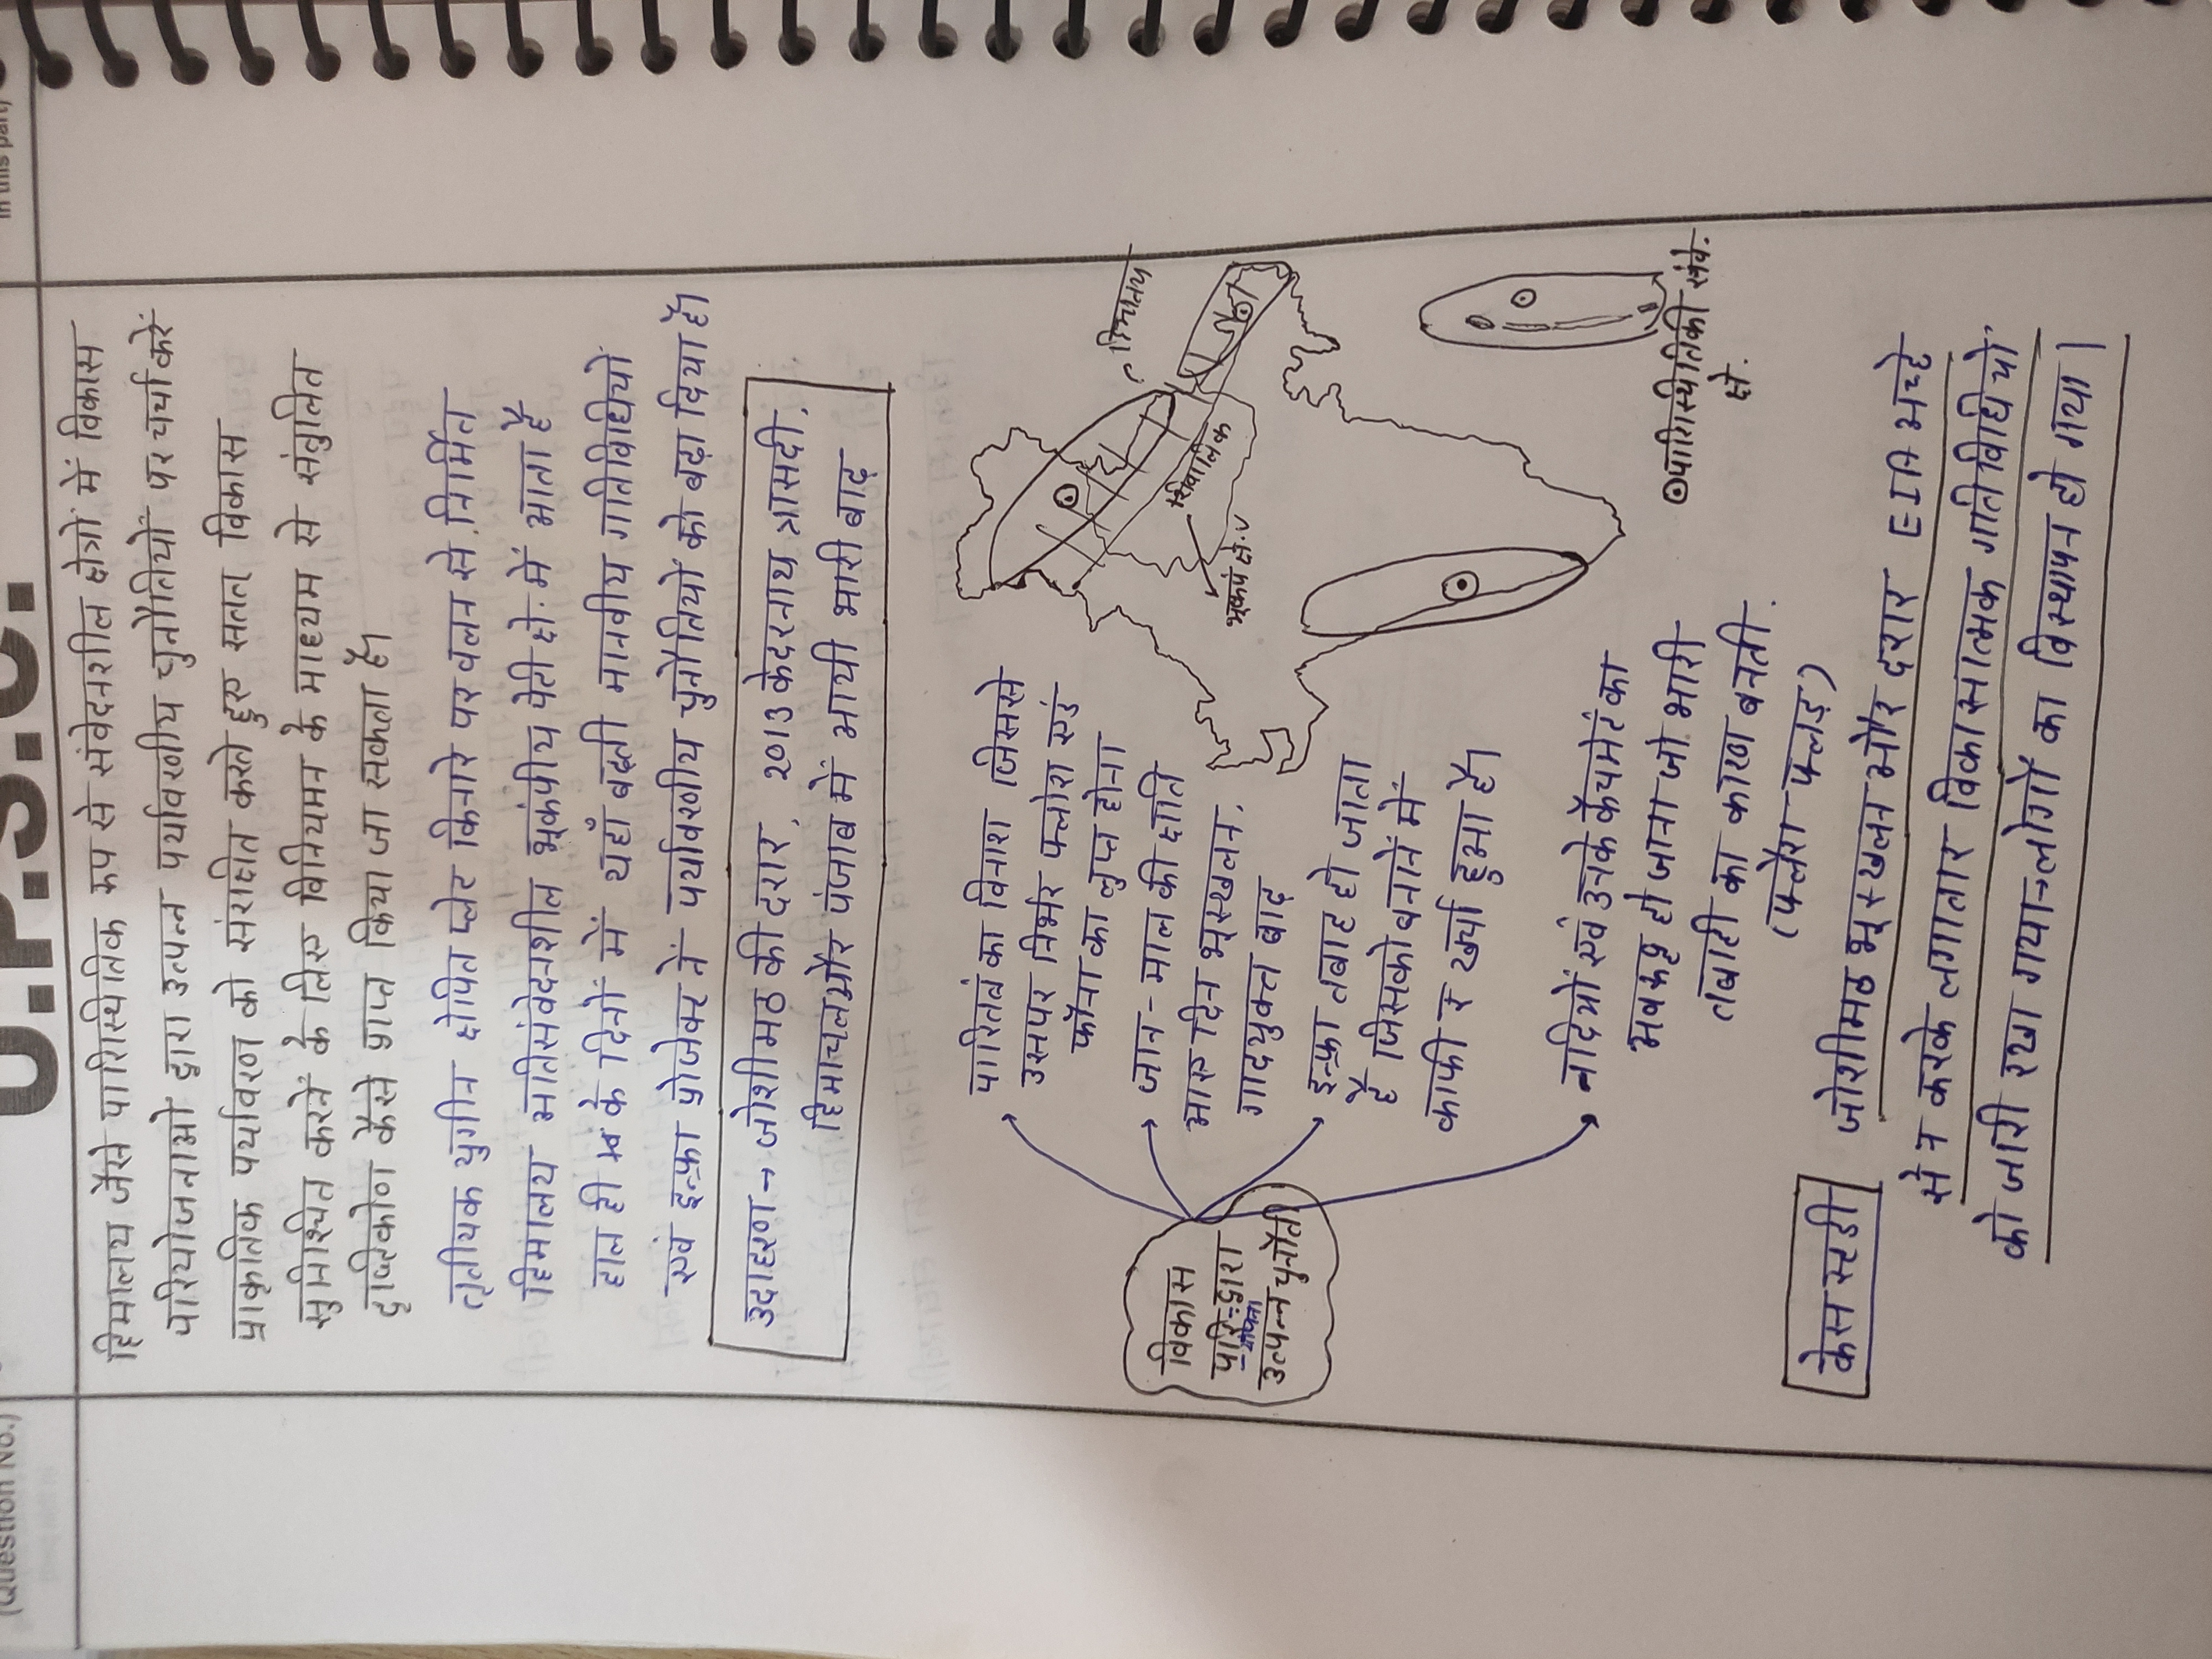 (Question No.)
U.P.S.C.
in this part)
हिमालय जैसे पारिस्थितिक रूप से संवेदनशील क्षेत्रों में विकास
परियोजनाओं द्वारा उत्पन्न पर्यावरणीय चुनौतियों पर चर्चा करें
प्राकृतिक पर्यावरण को संरक्षित करते हुए सतत विकास
सुनिश्चित करने के लिए विनियमन के माध्यम से संतुलित
दृष्टिकोण कैसे प्राप्त किया जा सकता है।
तृतीयक युगीन क्षेपित प्लेट किनारे पर वलन से निर्मित
हिमालय अतिसंवेदनशील भूकंपीय पेती क्षे. में आता है
हाल ही के दिनों में यहाँ बढ़ती मानवीय गतिविधियों
एवं इन्फ्रा प्रोजेक्ट ने पर्यावरणीय चुनौतियों को बढ़ा दिया है।
उदाहरण → जोशीमठ की दरार, 2013 केदरनाथ त्रासदी,
हिमाचल और पंजाब में आयी भारी बाढ़
विकास
परि. द्वारा
-योजना
उत्पन्न चुनौती
पारितंत्र का विनाश जिससे
उसपर निर्भर फ्लोरा एंड
फॉना का लुप्त होना
→ जान-माल की क्षति
आए दिन भूस्खलन,
गादयुक्त बाढ़
इन्फ्रा तबाह हो जाता
है जिसको बनाने में
काफी र खर्चा हुआ है।
→ नदियों एवं उनके कैचमेंट का
अवरुद्ध हो जाना जो भारी
तबाही का कारण बनती.
(फ्लैश फ्लड)
हिमालय
शिवालिक
भूकंप क्षे.
⊙ पारिस्थितिकी संवे.
क्षे.
केस स्टडी
जोशीमठ भूस्खलन और दरार EIA अच्छे
से न करके लगातार विकासात्मक गतिविधियों
को जारी रखा गया → लोगों का विस्थापन हो गया।